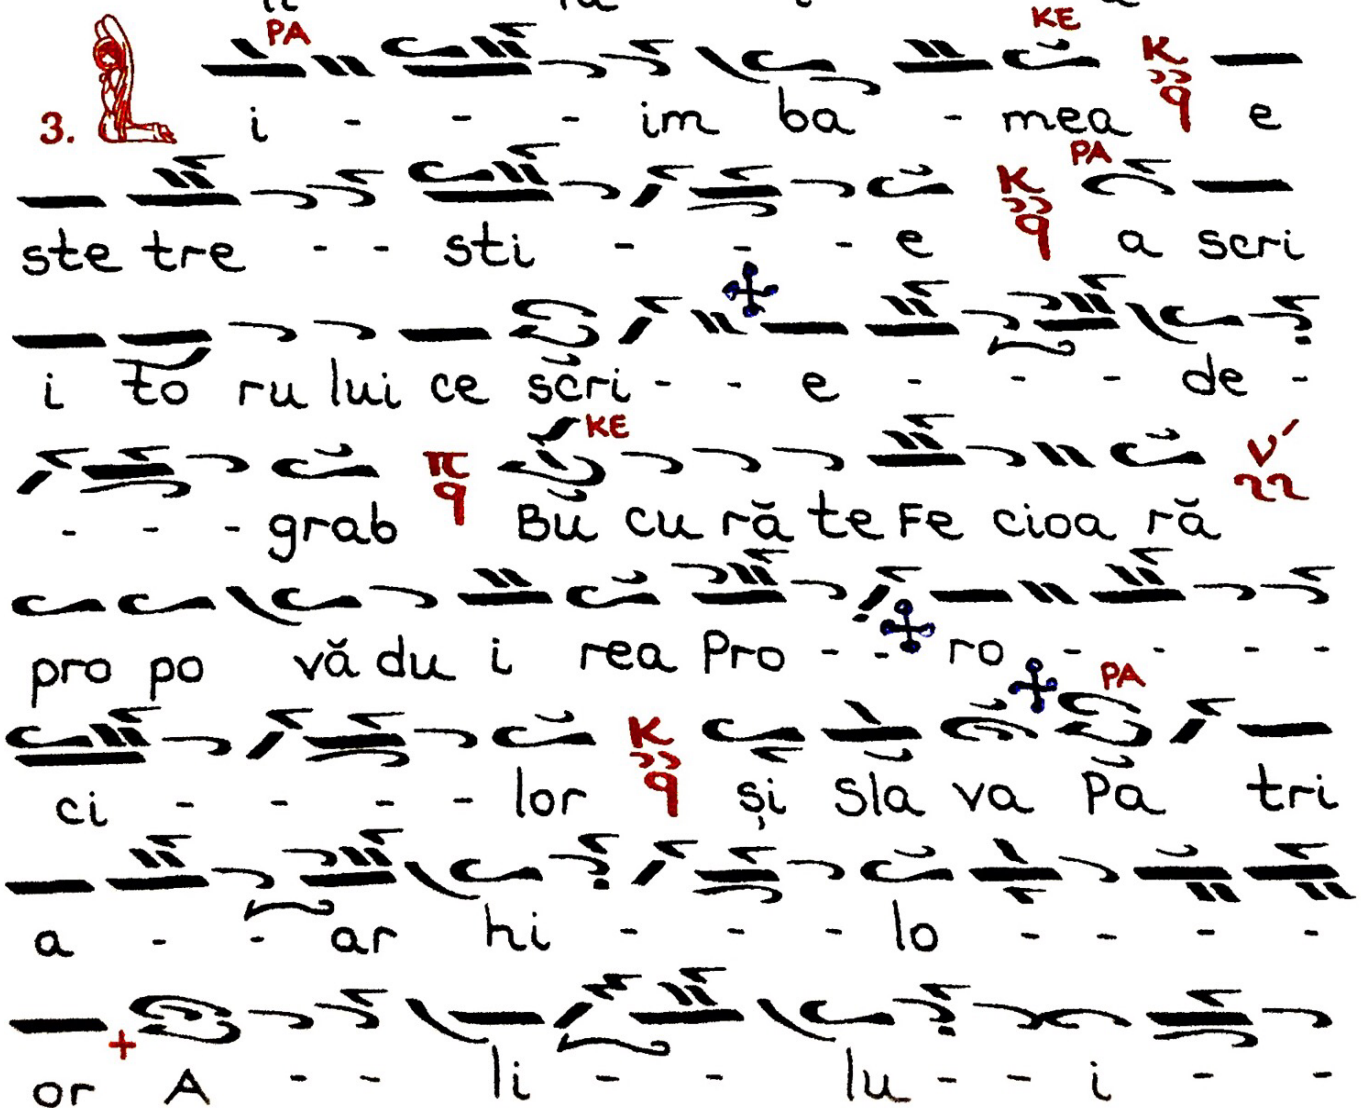 PA KE
3. i - - - im ba - mea K q e
PA
ste tre - - sti - - - e K q a scri
i to ru lui ce scri - - e - - - de -
KE
- - - grab π q Bu cu ră te Fe cioa ră ν´
pro po vă du i rea Pro - - ro - - - -
PA
ci - - - - lor K q și Sla va Pa tri
a - - ar hi - - - lo - - - -
or + A - - li - - lu - - i - -